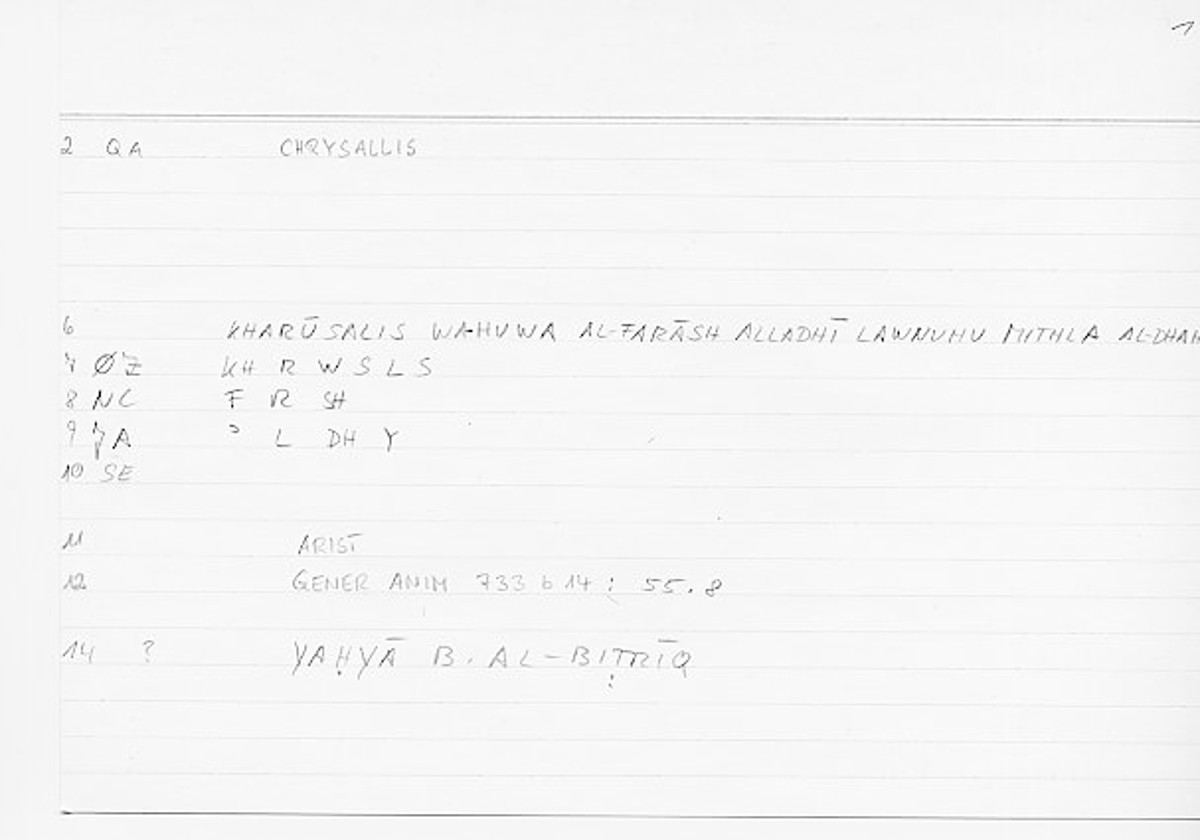 1
2 QA CHRYSALLIS
6 KHARŪSALIS WA-HUWA AL-FARĀSH ALLADHĪ LAWNUHU MITHLA AL-DHAH
7 ØZ KH R W S L S
8 NC F R SH
9 7A ʾ L DH Y
10 SE
11 ARIST
12 GENER ANIM 733 b 14 : 55.8
14 ? YAḤYĀ B. AL-BIṬRĪQ